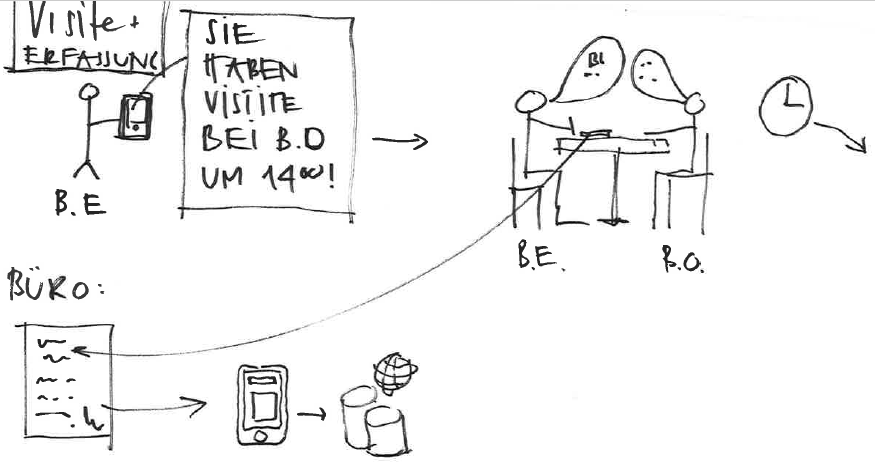 Visite +
ERFASSUNG
SIE
HABEN
VISTITE
BEI B.O
UM 14⁰⁰!
B.E
BL
B.E.
B.O.
BÜRO: